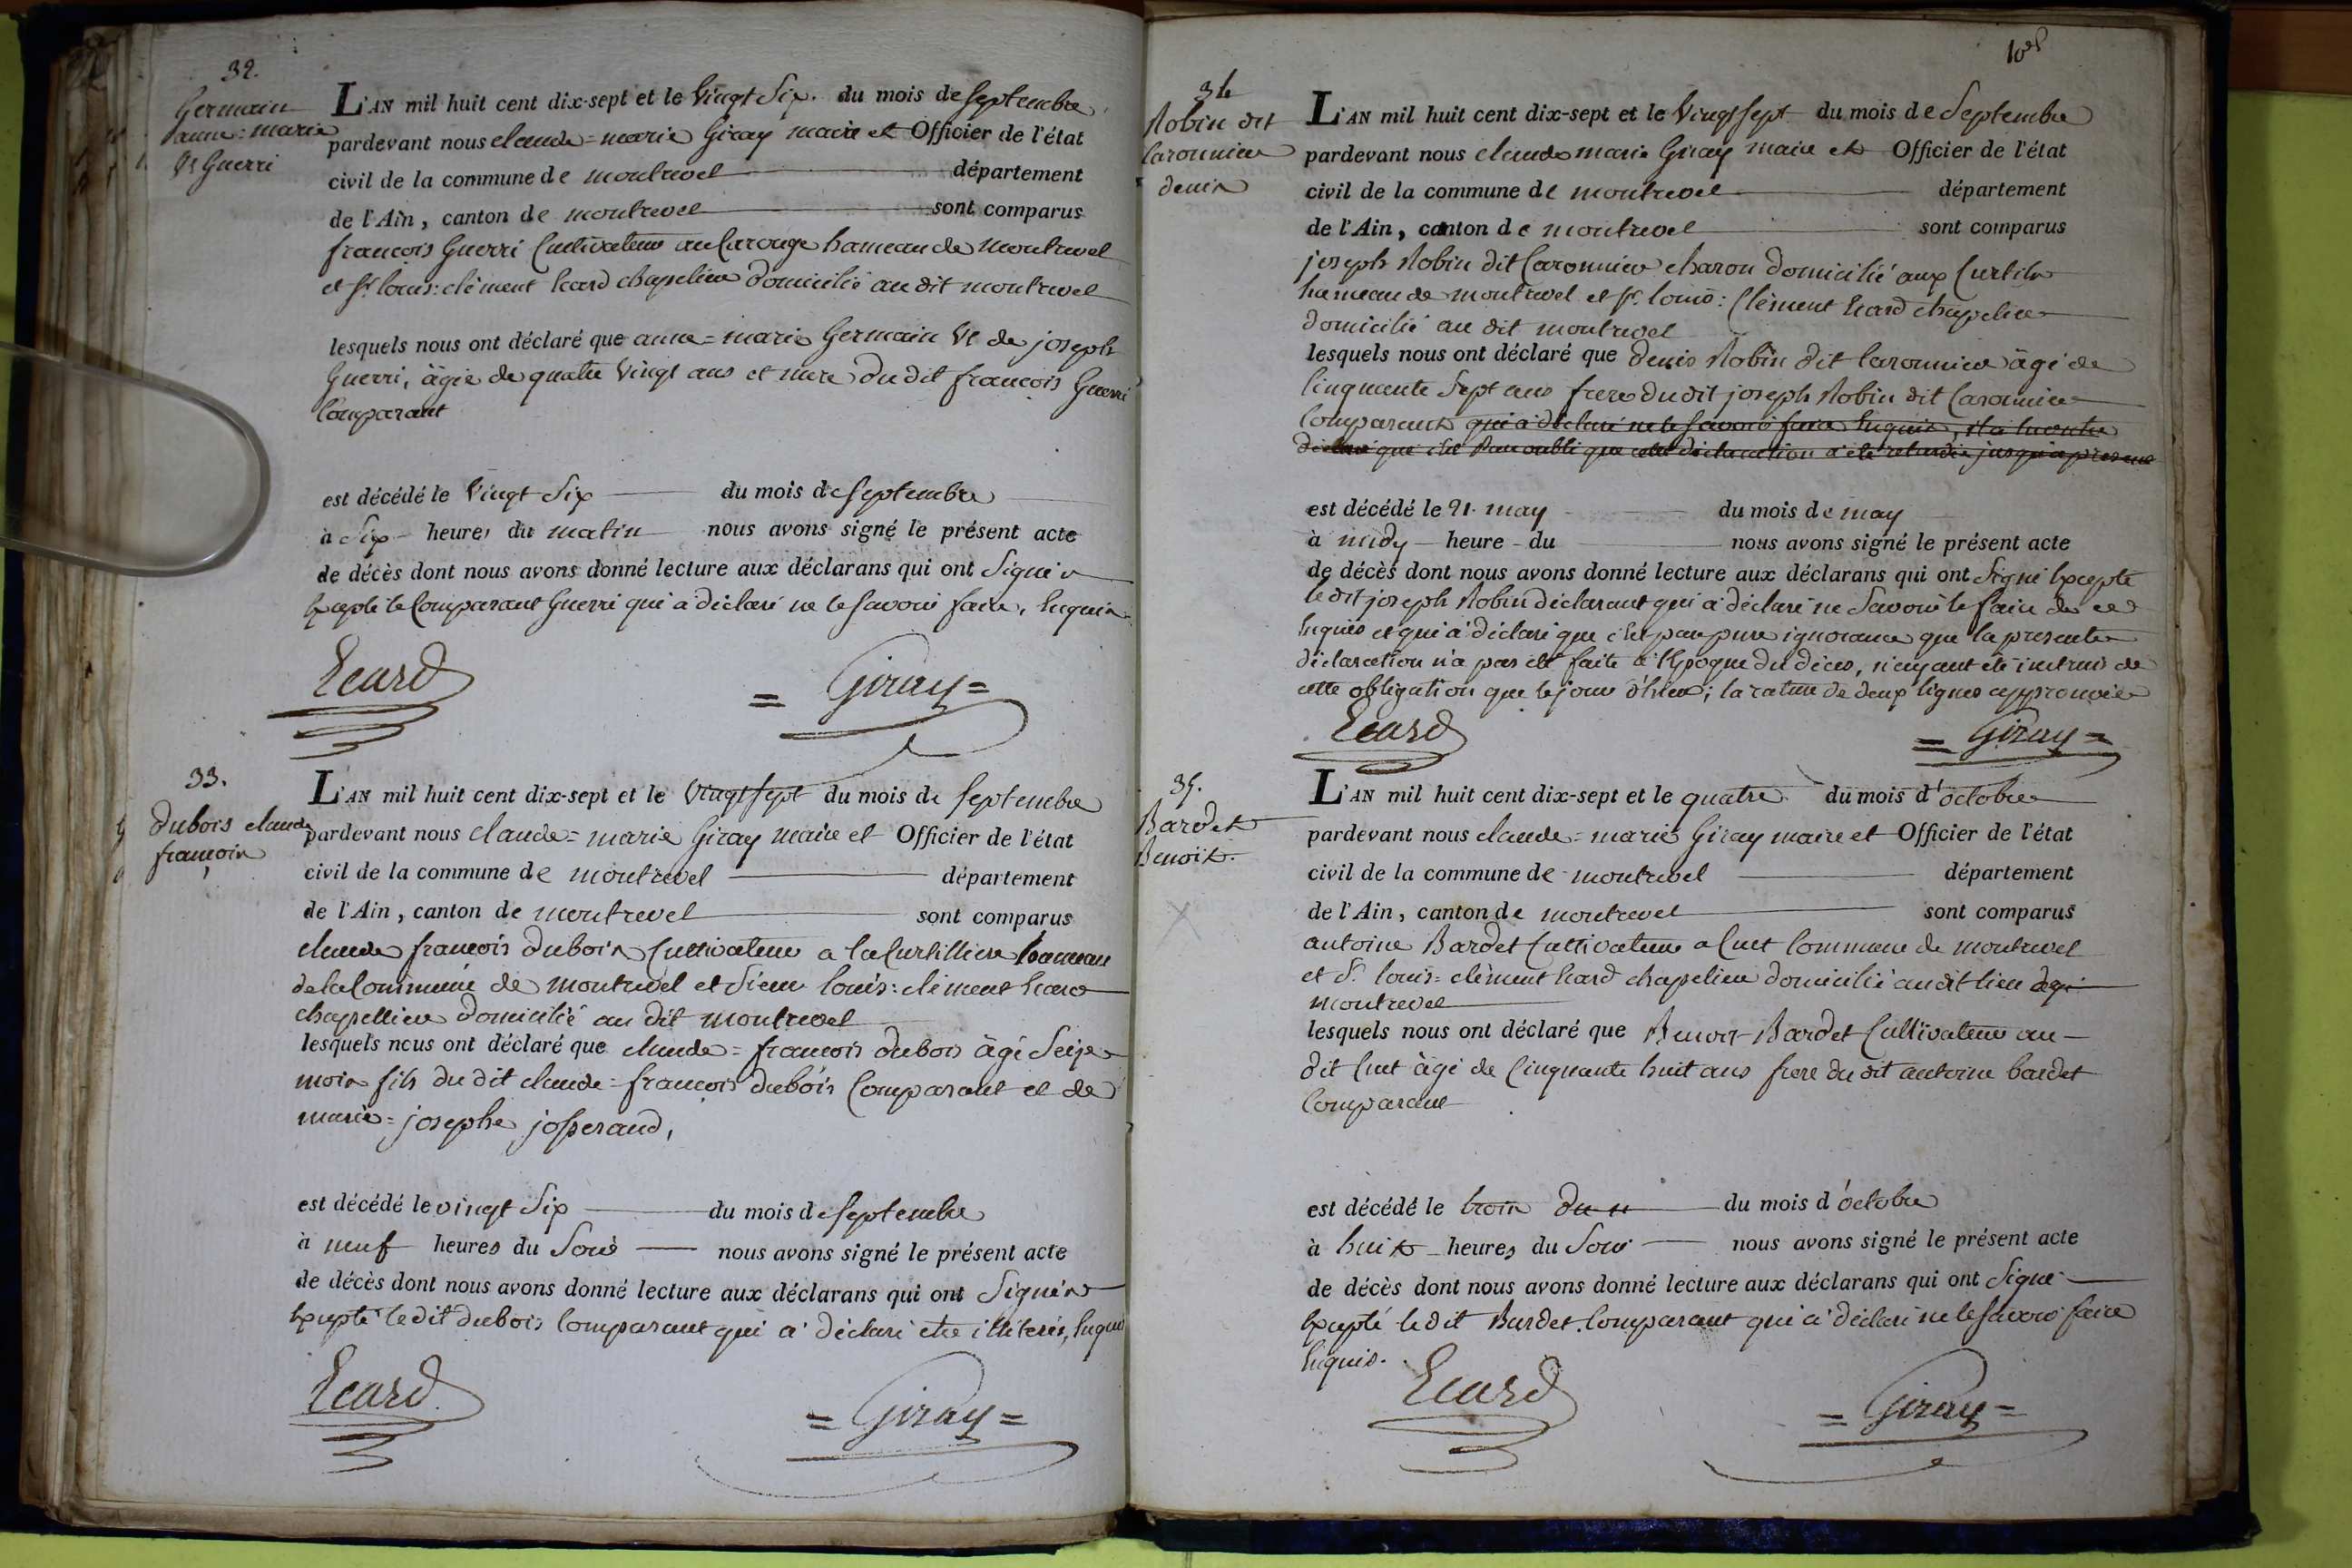 32.
Germain
anne=marie
Ve Guerri
L'AN mil huit cent dix-sept et le vingt six. du mois de septembre
pardevant nous claude=marie Giray maire et Officier de l'état
civil de la commune de montrevel département
de l'Ain, canton de montrevel sont comparus
françois Guerri Cultivateur au Carouge hameau de montrevel
et sr. louis:clément Ecard chapelier domicilié au dit montrevel
lesquels nous ont déclaré que anne=marie Germain Ve de joseph
Guerri, âgée de quatre vingt ans et mere du dit françois Guerri
Comparant
est décédé le vingt six du mois de septembre
à six heures du matin nous avons signé le présent acte
de décès dont nous avons donné lecture aux déclarans qui ont signés
Excepté le Comparant Guerri qui a déclaré ne le savoir faire, Enquis
Ecard
= Giray =
33.
dubois claude
françois
L'AN mil huit cent dix-sept et le vingt sept du mois de septembre
pardevant nous claude=marie Giray maire et Officier de l'état
civil de la commune de montrevel département
de l'Ain, canton de montrevel sont comparus
claude françois dubois Cultivateur a la Curtilliere hameau
de la Commune de montrevel et sieur louis:clément Ecard
chapellier domicilié au dit montrevel
lesquels nous ont déclaré que claude=françois dubois âgé seize
mois fils du dit claude=françois dubois Comparant et de
marie=josephe josserand,
est décédé le vingt six du mois de septembre
à neuf heures du soir nous avons signé le présent acte
de décès dont nous avons donné lecture aux déclarans qui ont signés
Excepté le dit dubois Comparant qui a déclaré être illiteré, Enquis
Ecard
= Giray =
34
Robin dit
Caronnier
denis
L'AN mil huit cent dix-sept et le vingt sept du mois de septembre
pardevant nous claude marie Giray maire et Officier de l'état
civil de la commune de montrevel département
de l'Ain, canton de montrevel sont comparus
joseph Robin dit Caronnier charon domicilié aux Curtils
hameau de montrevel et sr. louis:Clément Ecard chapelier
domicilié au dit montrevel
lesquels nous ont déclaré que denis Robin dit Caronnier âgé de
Cinquante sept ans frere du dit joseph Robin dit Caronnier
Comparant qui a déclaré ne le savoir faire Enquis, il a
déclaré que c'est par oubli que cette déclaration a été retardée jusqu'a present
est décédé le 21. may du mois de may
à midy heure du nous avons signé le présent acte
de décès dont nous avons donné lecture aux déclarans qui ont signé Excepté
le dit joseph Robin déclarant qui a déclaré ne savoir le faire de ce
Enquis et qui a déclaré que c'est par pure ignorance que la presente
déclaration n'a pas été faite à l'Epoque du déces, n'ayant été instruit de
cette obligation que le jour d'hier; la rature de deux lignes approuvée
Ecard
= Giray =
35.
Bardet
Benoit.
L'AN mil huit cent dix-sept et le quatre du mois d'octobre
pardevant nous claude=marie Giray maire et Officier de l'état
civil de la commune de montrevel département
de l'Ain, canton de montrevel sont comparus
antoine Bardet Cultivateur a Cuet Commune de montrevel
et Sr. louis=clément Ecard chapelier domicilié audit lieu
montrevel
lesquels nous ont déclaré que Benoit Bardet Cultivateur au
dit Cuet âgé de Cinquante huit ans frere du dit antoine bardet
Comparant
est décédé le trois du mois d'octobre
à huit heures du soir nous avons signé le présent acte
de décès dont nous avons donné lecture aux déclarans qui ont signé
Excepté le dit Bardet Comparant qui a déclaré ne le savoir faire
Enquis.
Ecard
= Giray =